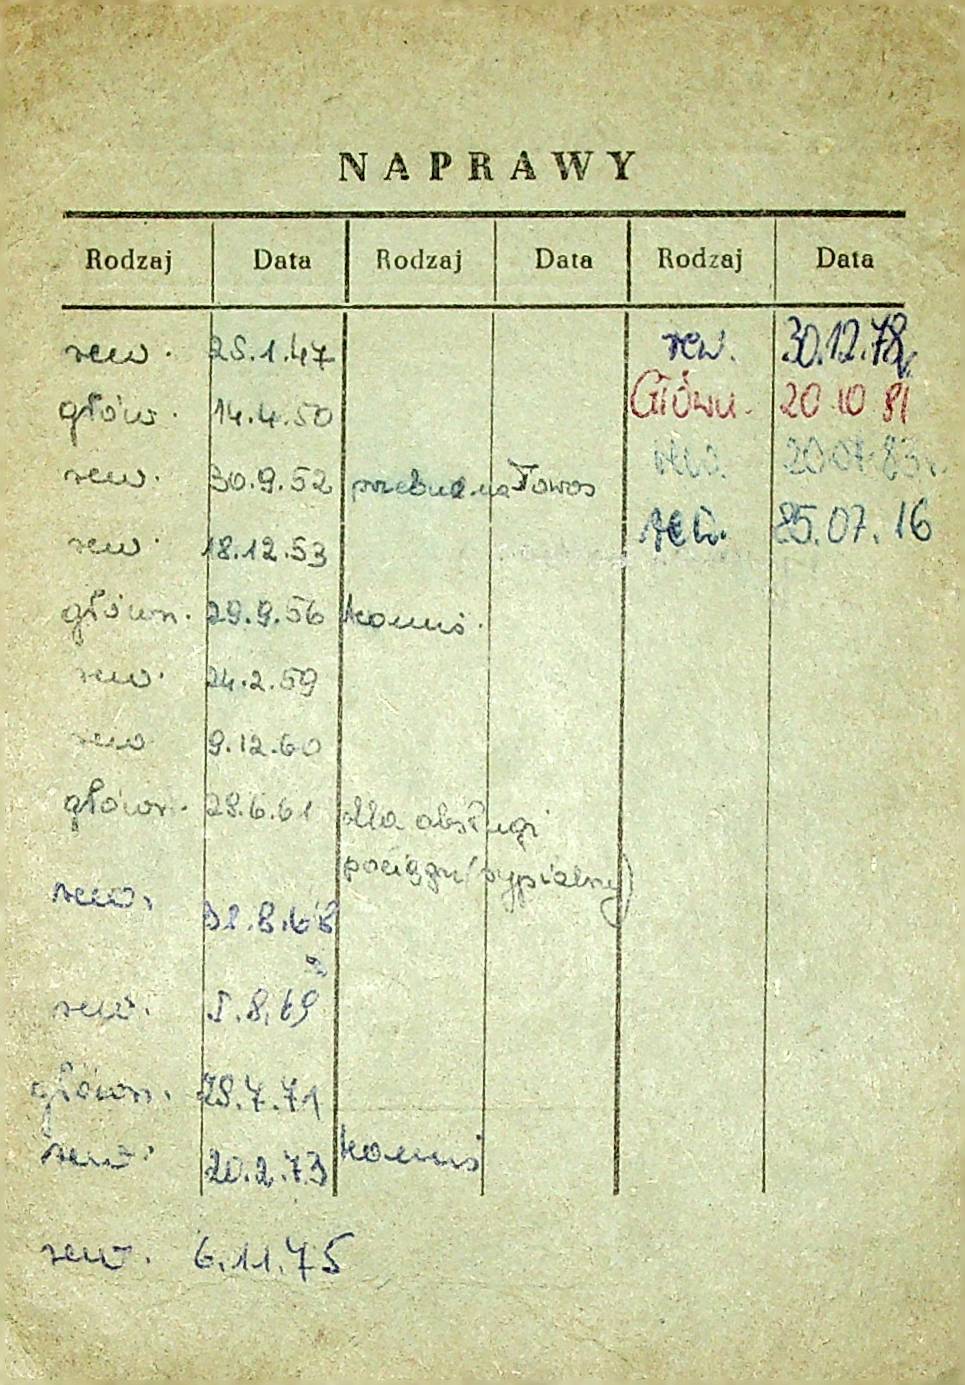 NAPRAWY
Rodzaj Data Rodzaj Data Rodzaj Data
rew. 25.1.47 rew. 30.12.78r.
głów. 14.4.50 Główn. 20 10 81
rew. 30.9.52 przebud. na Towos rew. 20 07.83r.
rew. 18.12.53 rew. 25.07.16
główn. 29.9.56 komis.
rew. 24.2.59
rew 9.12.60
główn. 28.6.61 dla obsługi
pociągu (sypialny)
rew. 31.8.68
rew. 5.8.69
główn. 28.7.71
rew. 20.2.73 komis
rew. 6.11.75